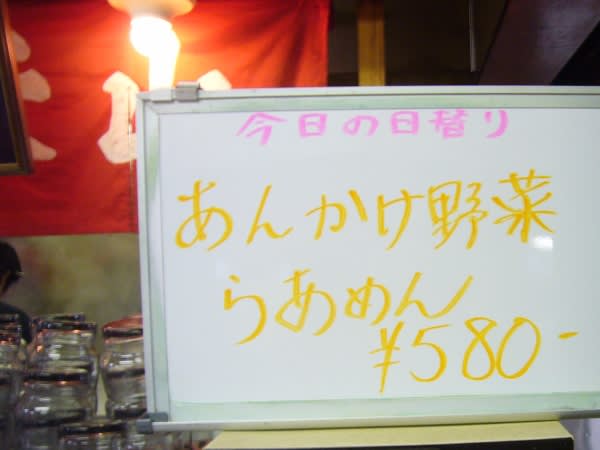 今日の日替り
あんかけ野菜
らあめん
¥580-